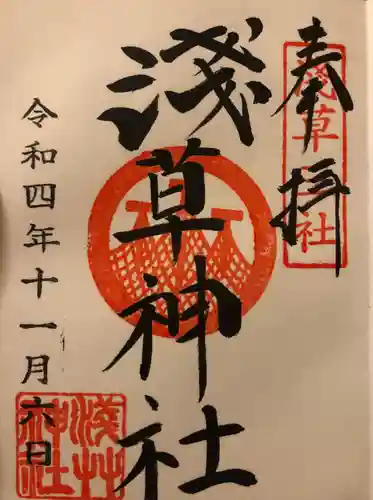 奉拝
淺草社
淺草神社
令和四年十一月六日
淺草
神社